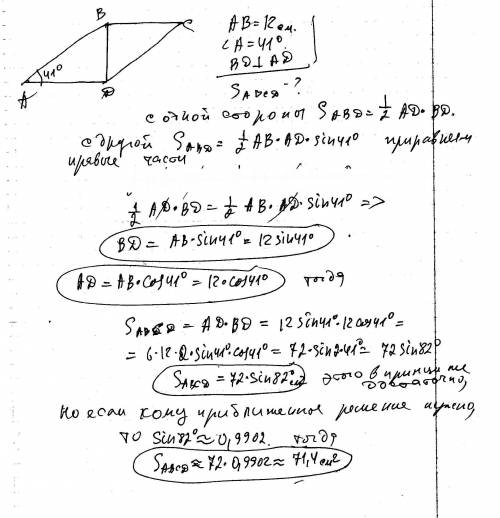 B C
41°
A D
AB=12см.
∠A=41°
BD⊥AD
S_ABCD-?
с одной стороны S_ABD=½ AD·BD.
с другой S_ABD=½ AB·AD·sin41° приравняем
правые части
½ AD·BD=½ AB·AD·sin41° =>
BD= AB·sin41°=12sin41°.
AD=AB·cos41°=12·cos41° тогда
S_ABCD=AD·BD=12sin41°·12cos41°=
=6·12·2·sin41°·cos41°=72·sin2·41°=72sin82°
S_ABCD=72·sin82°см² этого в принципе
достаточно,
но если кому приближенное решение нужно,
то sin82°≈0,9902. тогда
S_ABCD≈72·0,9902≈71,4см²